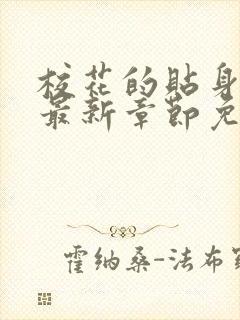 校花的贴身
最新章节免
霍纳桑-法布